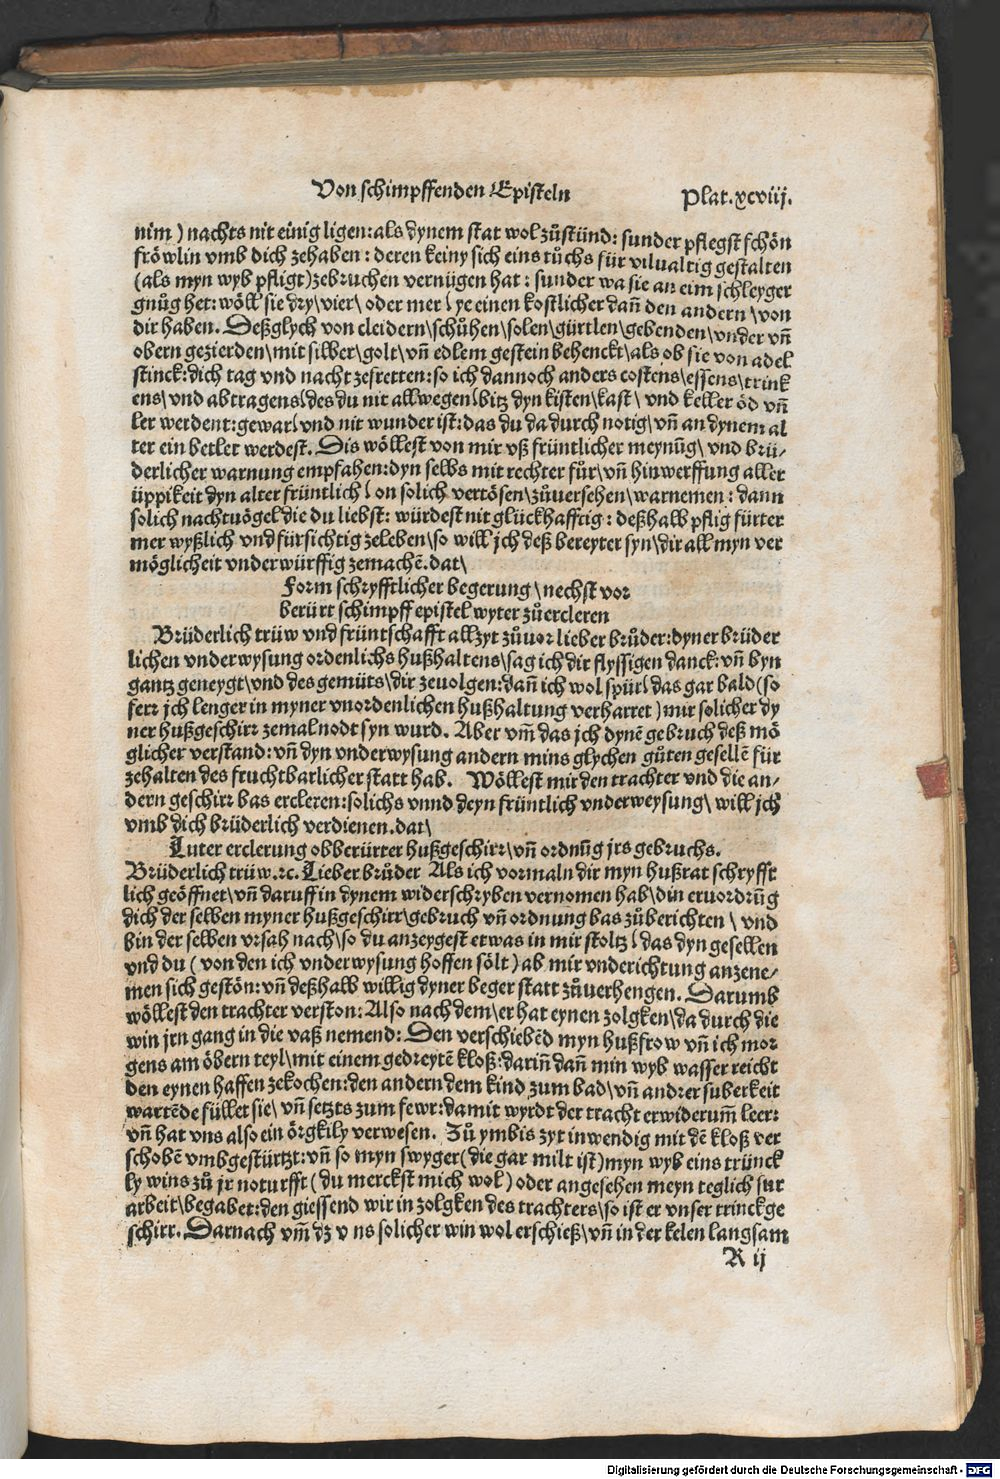 Von schimpffenden Episteln
Plat. xcviij.
nim ) nachts nit einig ligen: als dynem stat wol zůstünd: sunder pflegst schön
frőwlin vmb dich zehaben : deren keiny sich eins tůchs für vilualtig gestalten
(als myn wyb pfligt) zebruchen vernügen hat : sunder wa sie an eim schleyger
gnůg het: wőll sie dry\ vier\ oder mer ( ye einen kostlicher dañ den andern \ von
dir haben. Deßglych von cleidern\ schůhen\ solen\ gürtlen\ gebenden\ vnder vñ
obern gezierden\ mit silber\ golt\ vñ edlem gestein behenckt\ als ob sie von adel
stinck: dich tag vnd nacht zefretten: so ich dannoch anders costens\ essens\ trink
ens\ vnd abtragens( des du nit allwegen( bitz dyn kisten\ kast\ vnd keller őd vñ
ler werdent: gewar( vnd nit wunder ist: das du da durch notig\ vñ an dynem al
ter ein betler werdest. Dis wőllest von mir vß früntlicher meynũg\ vnd brü⸗
derlicher warnung empfahen: dyn selbs mit rechter fůr\ vñ hinwerffung aller
üppikeit dyn alter früntlich( on solich vertősen\ zůuersehen\ warnemen : dann
solich nachtuőgel die du liebst: würdest nit glückhafftig : deßhalb pflig fürter
mer wyßlich vnd fürsichtig zeleben\ so will jch deß bereyter syn\ dir all myn ver
mőglicheit vnderwürffig zemachẽ. dat\
Form schryfftlicher begerung \ nechst vor
berürt schimpff epistel wyter zůercleren
Brüderlich trüw vnd früntschafft allzyt zůuor lieber brůder: dyner brüder
lichen vnderwysung ordenlichs hußhaltens\ sag ich dir flyssigen danck: vñ byn
gantz geneygt\ vnd des gemüts\ dir zeuolgen: dañ ich wol spür( das gar bald (so
ferr jch lenger in myner vnordenlichen hußhaltung verharret ) mir solicher dy
ner hußgeschirr zemal nodt syn wurd. Aber vm̃ das jch dynẽ gebruch deß mő
glicher verstand: vñ dyn vnderwysung andern mins glychen gůten gesellẽ für
zehalten des fruchtbarlicher statt hab. Wőllest mir den trachter vnd die an⸗
dern geschirr bas ercleren: solichs vnnd deyn früntlich vnderweysung\ will jch
vmb dich brüderlich verdienen. dat\
Luter erclerung obberürter hußgeschirr\ vñ ordnũg jrs gebruchs.
Brüderlich trüw. ꝛc. Lieber brůder Als ich vormaln dir myn hußrat schryfft
lich geőffnet\ vñ daruff in dynem widerschryben vernomen hab\ din eruordrũg
dich der selben myner hußgeschirr\ gebruch vñ ordnung bas zůberichten \ vnd
bin der selben vrsah nach\ so du anzeygest etwas in mir stoltz ( das dyn gesellen
vnd du ( von den ich vnderwysung hoffen sőlt ) ab mir vnderichtung anzene⸗
men sich gestőn: vñ deßhalb willig dyner beger statt zůuerhengen. Darumb
wőllest den trachter verston: Also nach dem\ er hat eynen zolgken\ da durch die
win jrn gang in die vaß nemend: Den verschiebẽd myn hußfrow vñ ich mor
gens am őbern teyl\ mit einem gedreytẽ kloß: dariñ dañ min wyb wasser reicht
den eynen haffen zekochen: den andern dem kind zum bad\ vñ andrer suberkeit
wartẽde füllet sie\ vñ setzts zum fewr: damit wyrdt der tracht erwiderum̃ leer:
vñ hat vns also ein őrgkily verwesen. Zů ymbis zyt inwendig mit dẽ kloß ver
schobẽ vmbgestürtzt: vñ so myn swyger( die gar milt ist) myn wyb eins trünck
ly wins zů jr noturfft ( du merckst mich wol ) oder angesehen meyn teglich sur
arbeit\ begabet: den giessend wir in zolgken des trachters\ so ist er vnser trinckge
schirr. Darnach vm̃ dz v ns solicher win wol erschieß\ vñ in der kelen langsam
R ij
Digitalisierung gefördert durch die Deutsche Forschungsgemeinschaft - DFG